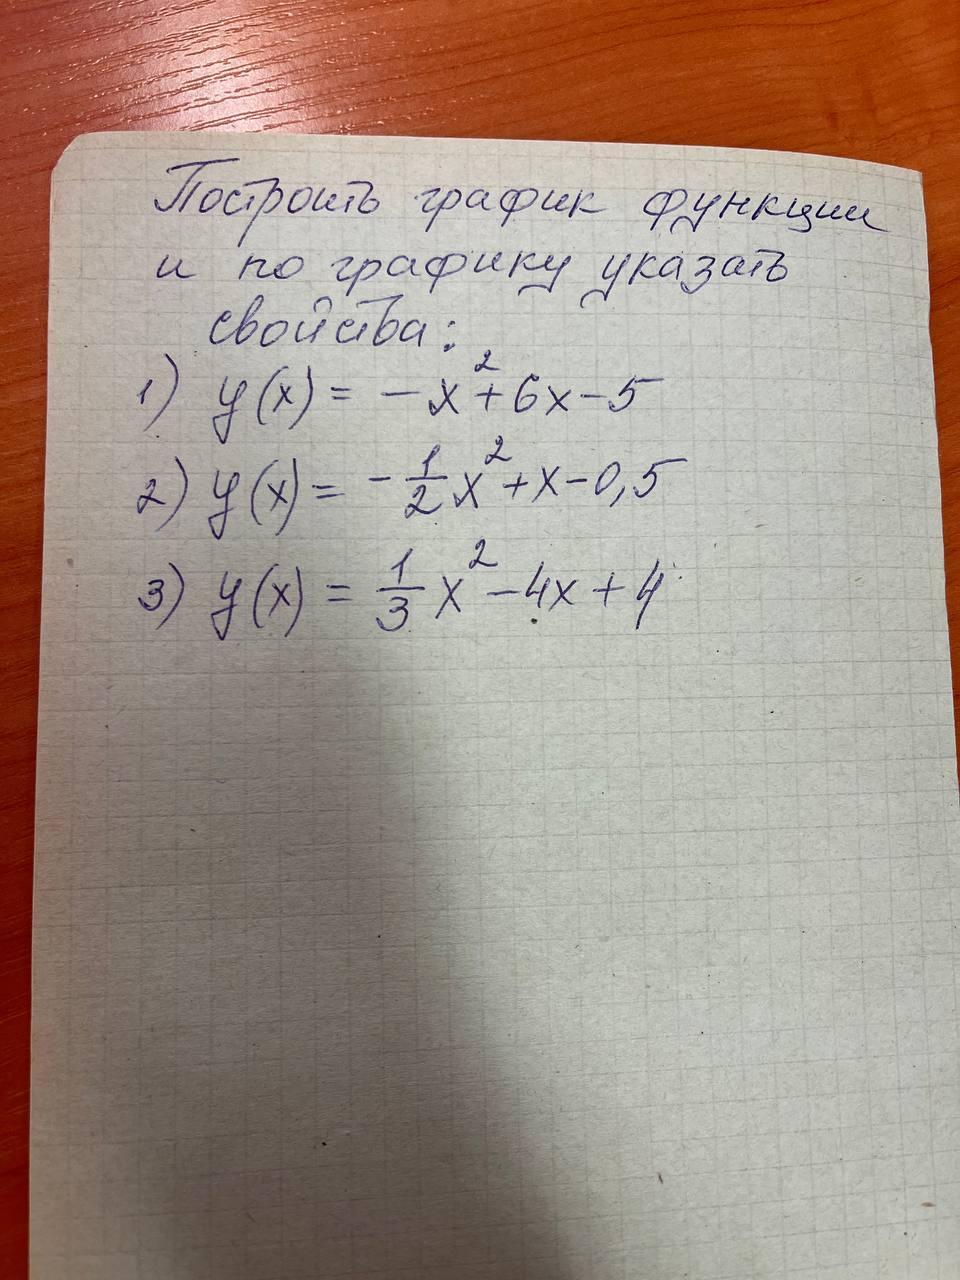 Построить график функции
и по графику указать
свойства:
1) y(x) = -x²+6x-5
2) y(x) = -1/2x²+x-0,5
3) y(x) = 1/3x²-4x+4